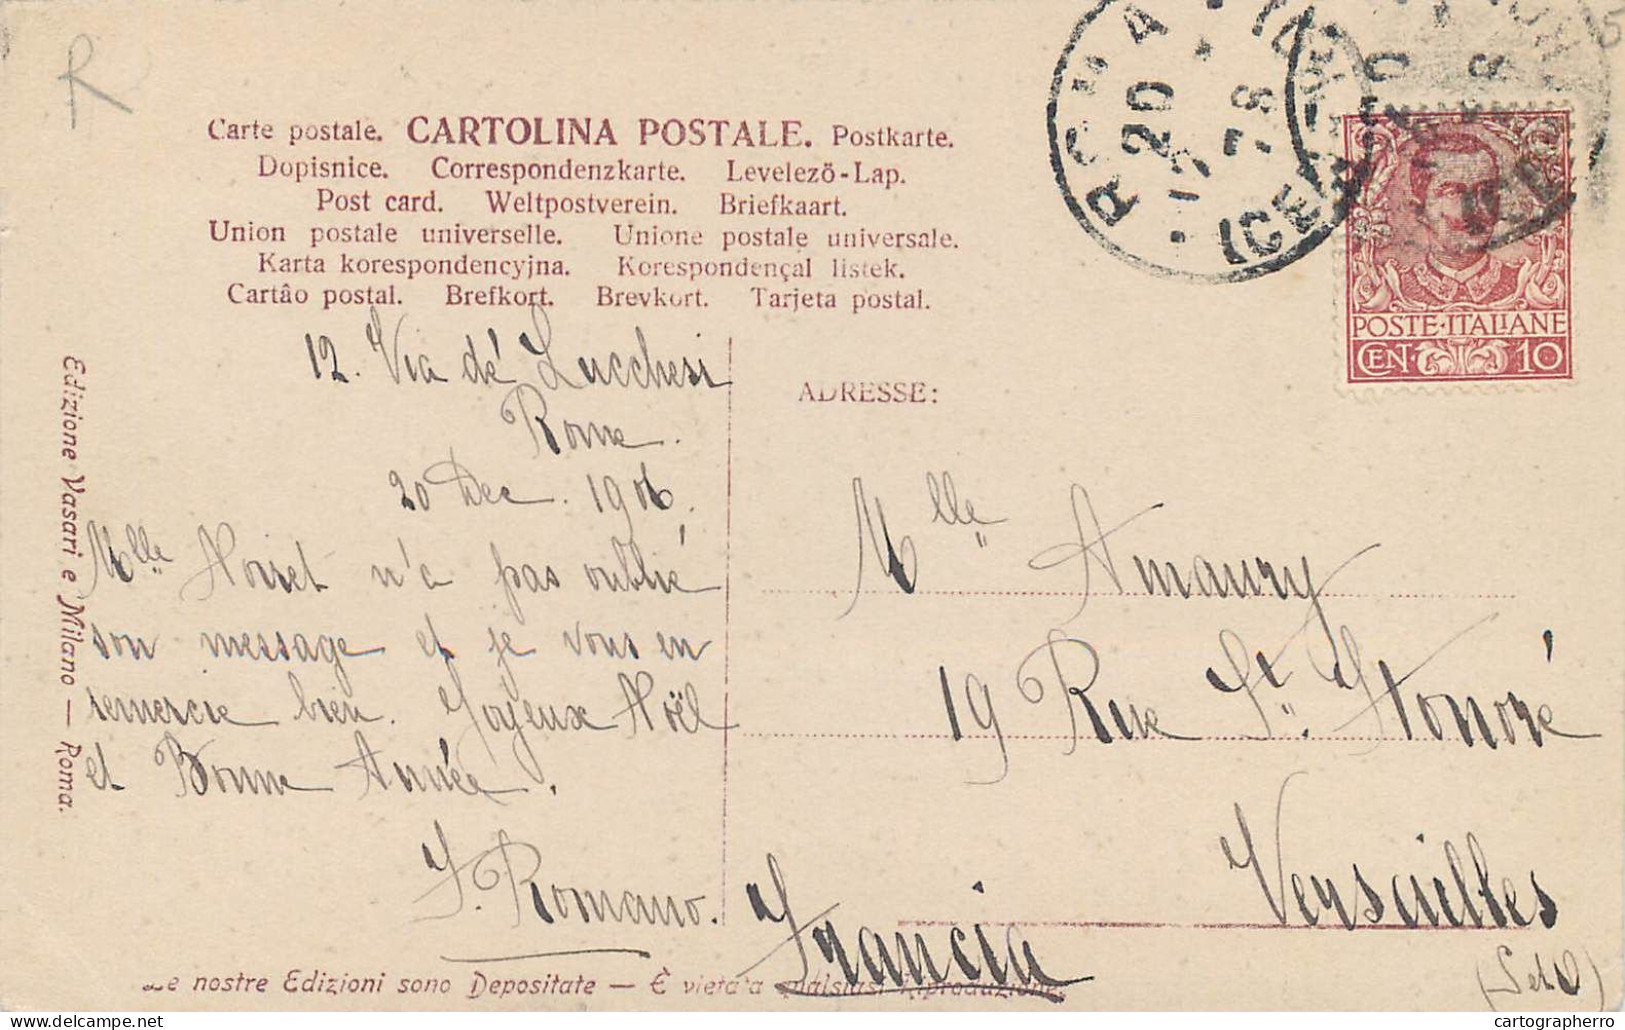 R
Carte postale. CARTOLINA POSTALE. Postkarte.
Dopisnice. Correspondenzkarte. Levelezö-Lap.
Post card. Weltpostverein. Briefkaart.
Union postale universelle. Unione postale universale.
Karta korespondencyjna. Korespondençal listek.
Cartâo postal. Brefkort. Brevkort. Tarjeta postal.
ROMA
20
12
(CEN
POSTE·ITALIANE
CEN· 10
ADRESSE:
12. Via dé Lucchesi
Rome.
20 Dec. 1906.
Mlle Noiret n'a pas oublié
son message et je vous en
remercie bien. Joyeux Noël
et Bonne Année.
F. Romano.
Mlle Amaury
19 Rue St. Honoré
Versailles
Francia
(S et O)
Edizione Vasari e Milano — Roma.
Le nostre Edizioni sono Depositate — È vietata qualsiasi Riproduzione.
cartographerro